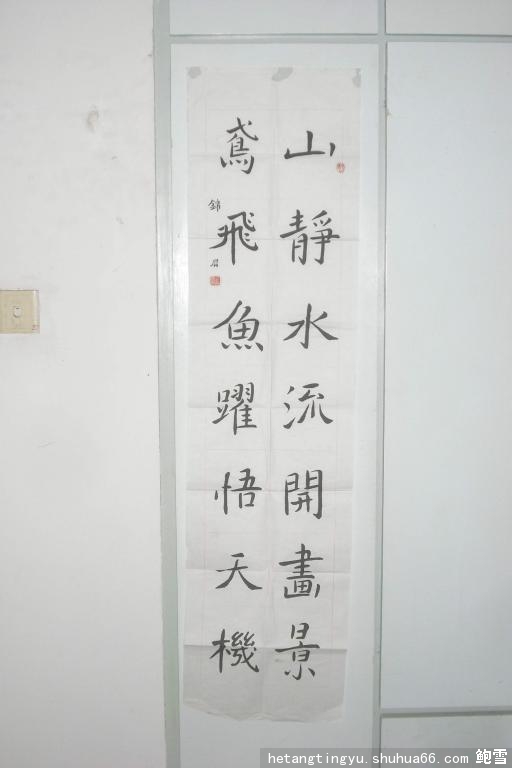 山靜水流開畫景
鳶飛魚躍悟天機
hetangtingyu.shuhua66.com 鲍雪